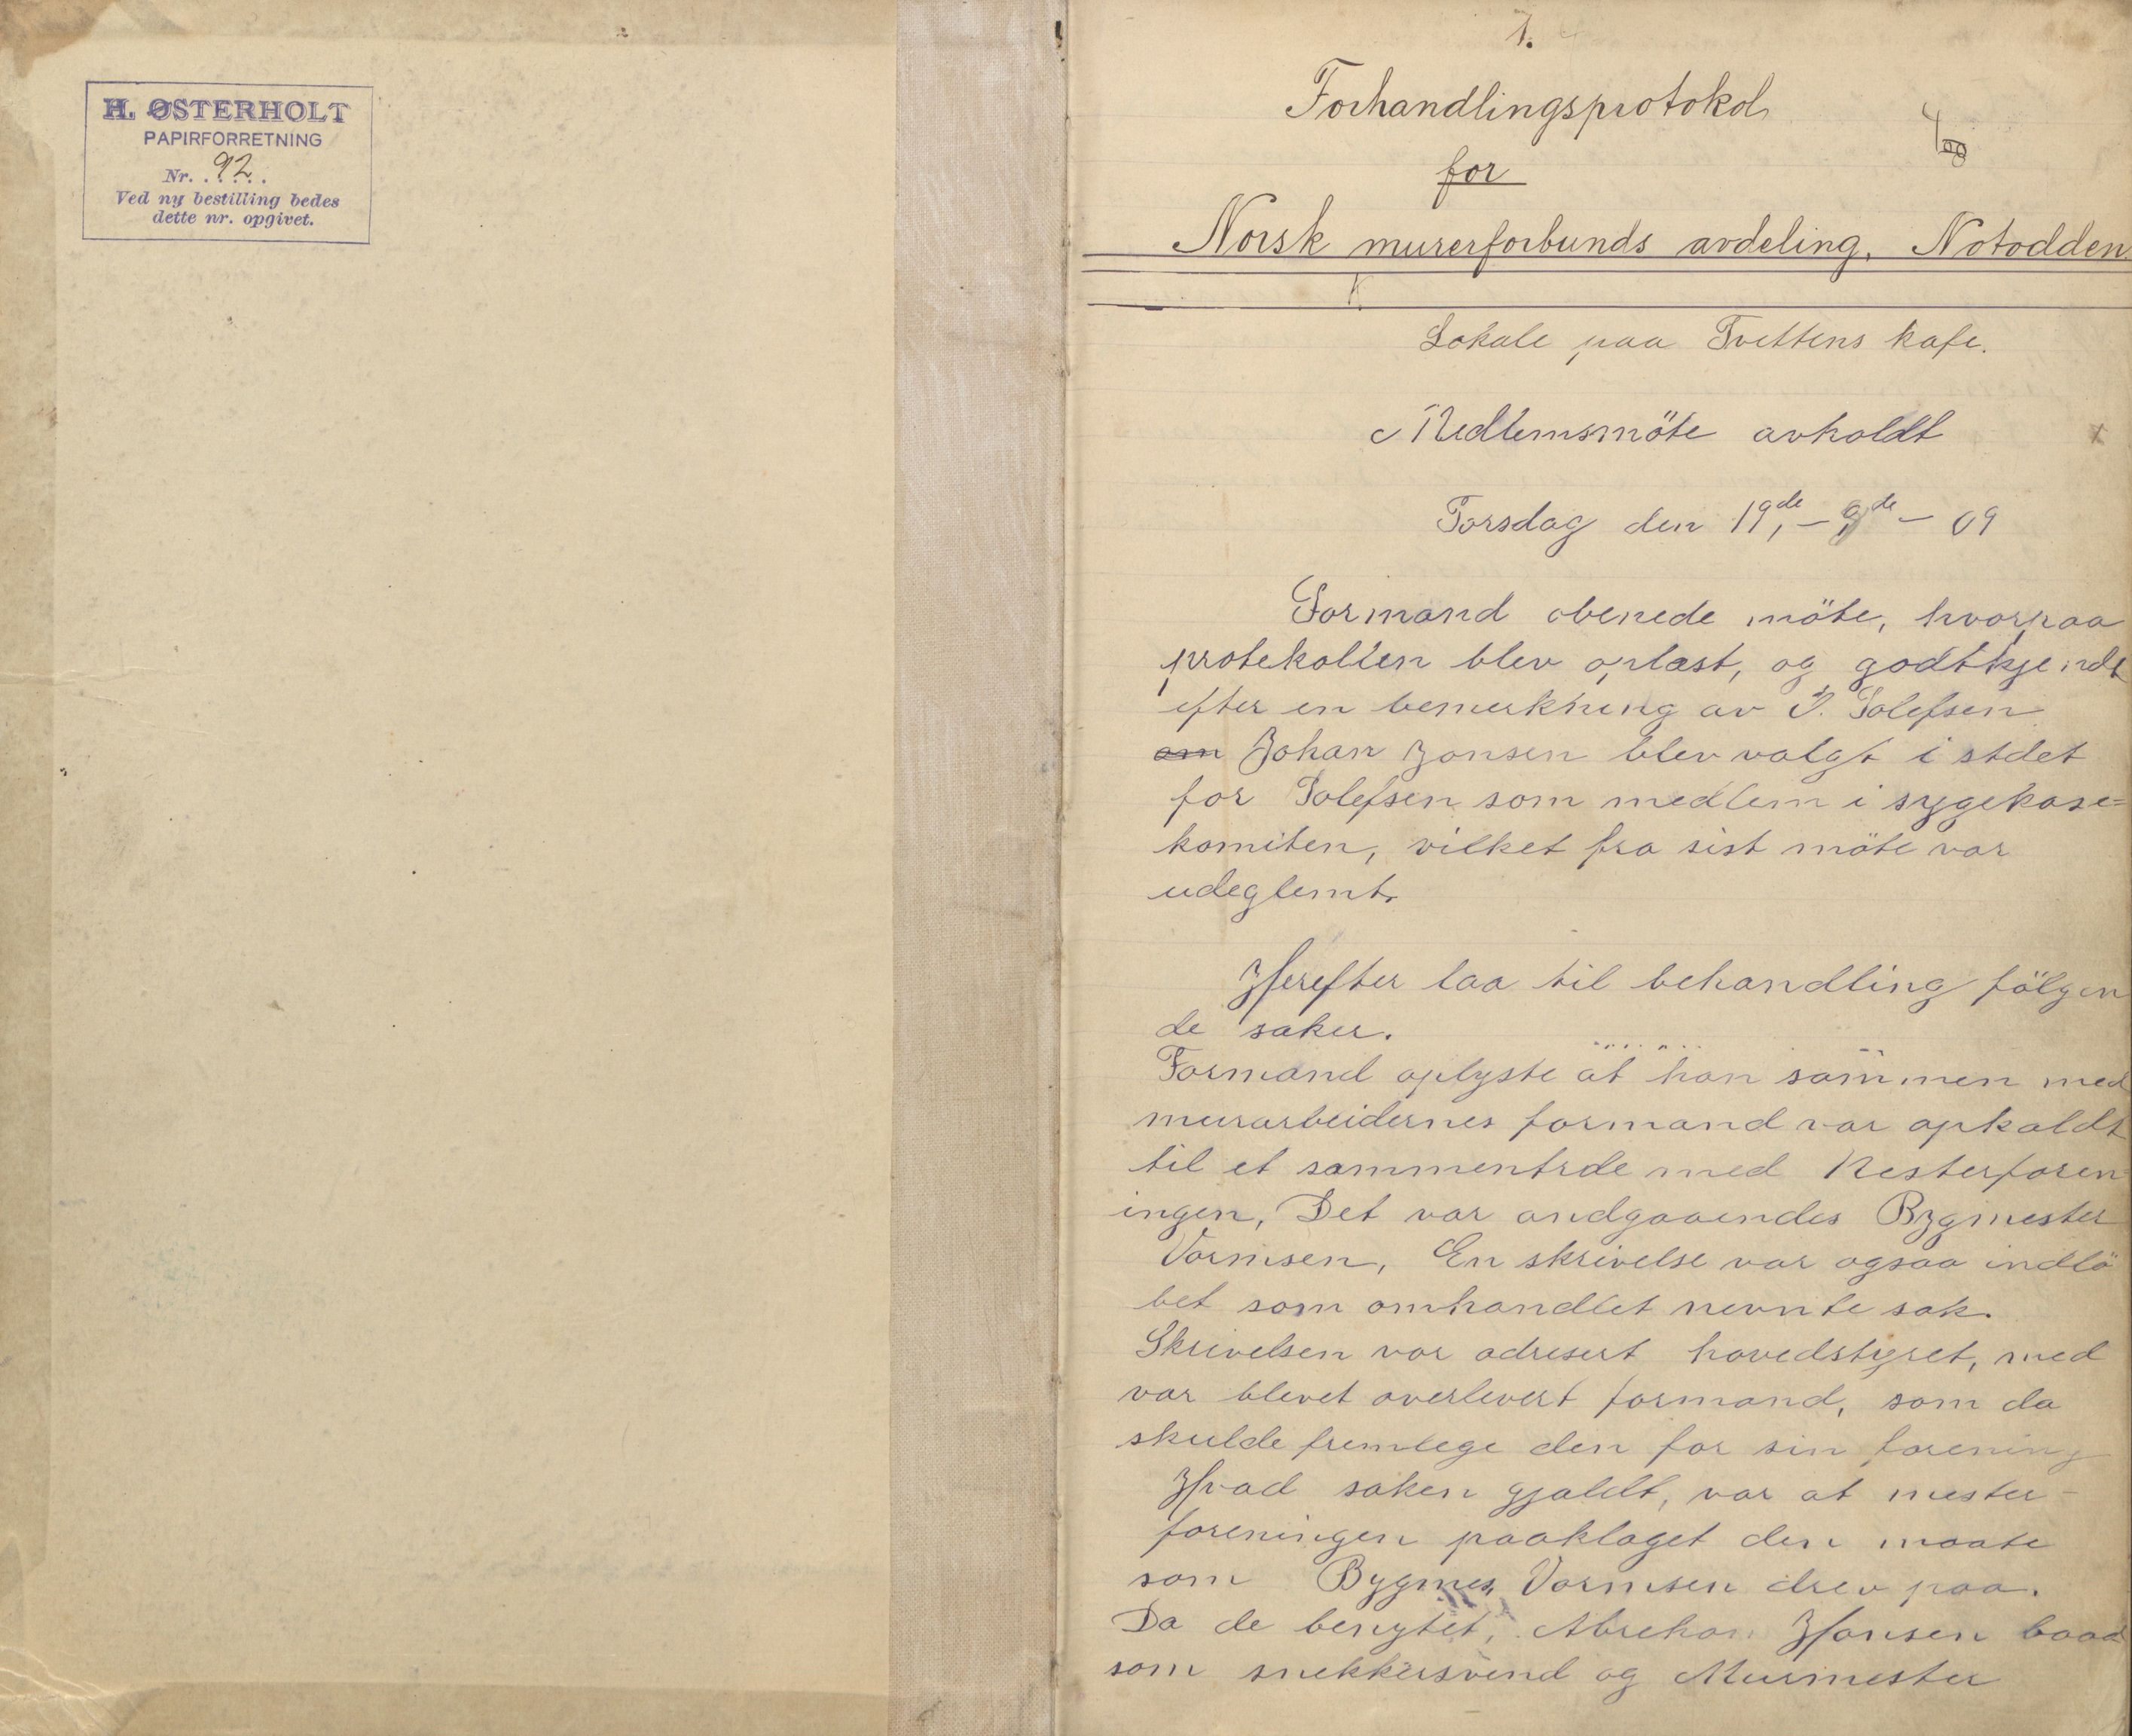 H. ØSTERHOLT
PAPIRFORRETNING
Nr. 92
Ved ny bestilling bedes
dette nr. opgivet.
1.
Forhandlingsprotokol
for
Norsk murerforbunds avdeling, Notodden
Lokale paa Tvettens kafe.
Medlemsmöte avholdt
Torsdag den 19de, - de - 09
Formand obenede möte, hvorpaa
protekollen blev oplæst, og godtkjendt
efter en bemerkning av T. Tolefsen
om Johan Jonsen blev valgt i stdet
for Tolefsen som medlem i sygekase=
komiten, vilket fra sist möte var
udeglemt.
Herefter laa til behandling fölgen
de saker.
Formand oplyste at han sammen med
murarbeidernes formand var opkaldt
til et sammentrde med Mesterforen-
ingen, Det var andgaaendes Bygmester
Vormsen, En skrivelse var ogsaa indlö
bet som omhandlet nevnte sak.
Skrivelsen var adresert hovedstyret, med
var blevet overlevert formand, som da
skulde fremlege den for sin forening
Hvad saken gjaldt, var at mester-
foreningen paaklaget den maate
som Bygmes, Vormsen drev paa.
Da de benytet, Abreham Hansen baad
som snekkersvend og Murmester